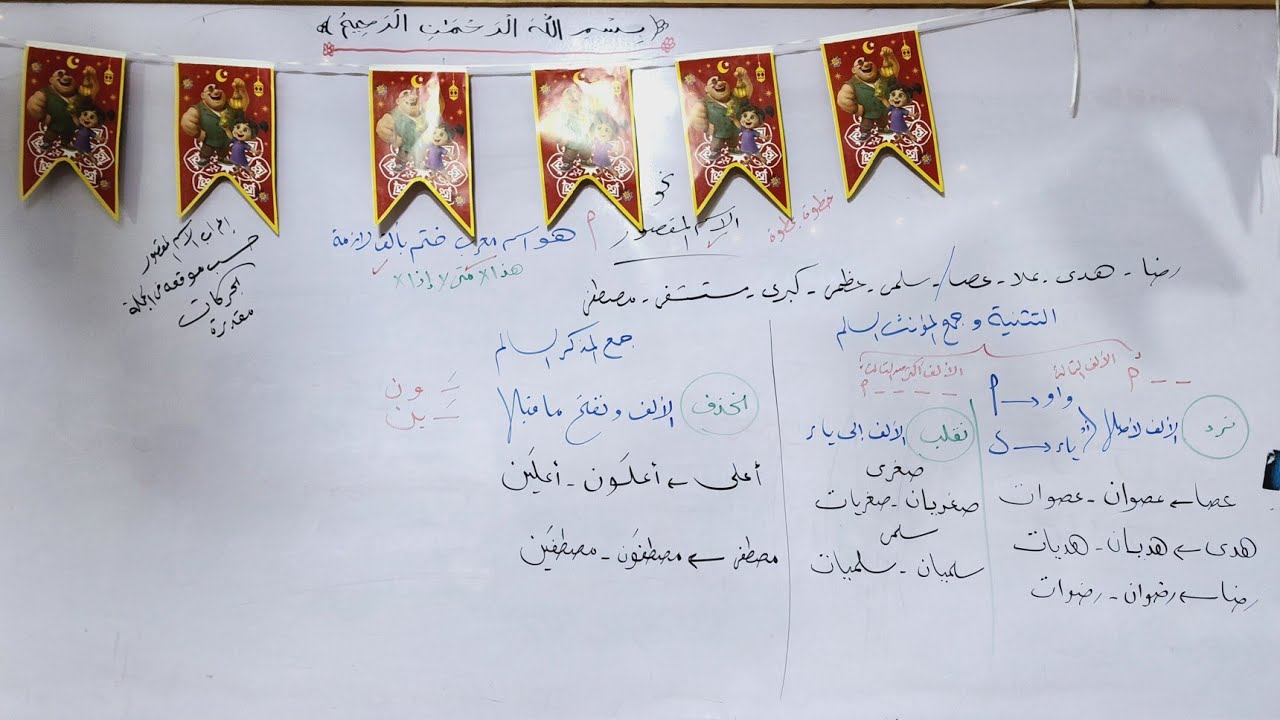 بِسْمِ اللَّهِ الرَّحْمَنِ الرَّحِيمِ
نحو
خطوة بخطوة
الاسم المقصور
هو اسم معرب ختم بألف لازمة
هذا x متى x إذا x
إعراب الاسم المقصور
حسب موقعه من الجملة
بحركات
مقدرة
رضا - هدى - علا - عصا / سلمى - عظمى - كبرى - مستشفى - مصطفى
التثنية و جمع المؤنث السالم
الألف الثالثة
ا _ _
نرد الألف لأصلها
واو ← ا
ياء ← ى
عصا ← عصوان - عصوات
هدى ← هديان - هديات
رضا ← رضوان - رضوات
الألف أكثر من الثالثة
ا _ _ _ _
نقلب الألف إلى ياء
صغرى
صغريان - صغريات
سلمى
سلميان - سلميات
جمع المذكر السالم
نحذف الألف و نفتح ما قبلها
ـَ ون
ـَ ين
أعلى ← أعلَون - أعلَين
مصطفى ← مصطفَون - مصطفَين